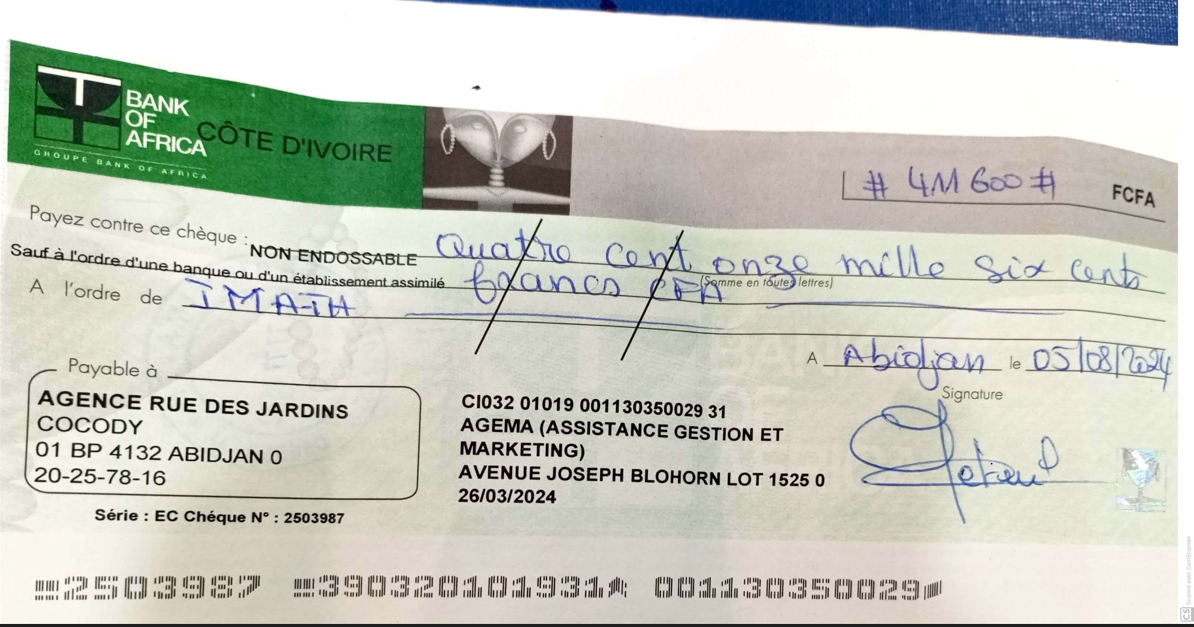 BANK
OF
AFRICA
CÔTE D'IVOIRE
GROUPE BANK OF AFRICA
# 411 600 # FCFA
Payez contre ce chèque : NON ENDOSSABLE Quatre cent onze mille six cents
Sauf à l'ordre d'une banque ou d'un établissement assimilé francs CFA (Somme en toutes lettres)
A l'ordre de IMATH
A Abidjan le 05/08/2024
Signature
Payable à
AGENCE RUE DES JARDINS
COCODY
01 BP 4132 ABIDJAN 0
20-25-78-16
CI032 01019 001130350029 31
AGEMA (ASSISTANCE GESTION ET
MARKETING)
AVENUE JOSEPH BLOHORN LOT 1525 0
26/03/2024
Série : EC Chéque N° : 2503987
2503987 390320101931 001130350029
CS Scanné avec CamScanner